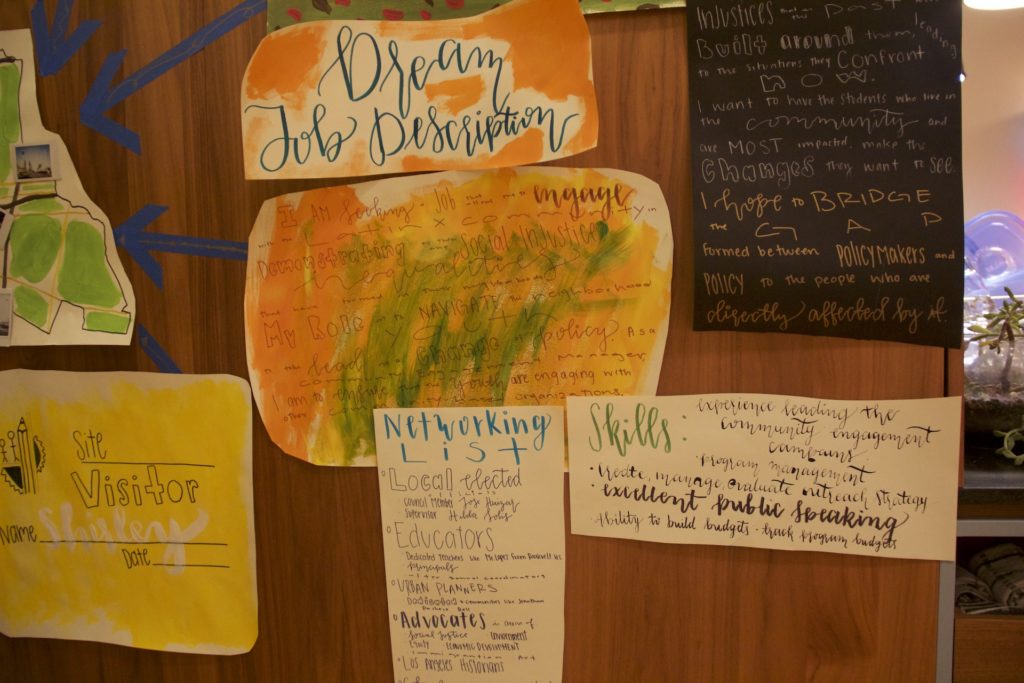 Dream
Job Description
I AM Seeking a Job that allows me to engage
with the Latinx community in
Demonstrating the Social Injustice
inequalities
that have formed the neighborhood
My Role is to NAVIGATE the
change policy. As a
lead
community manager
I am to ensure youth are engaging with
other organizations.
INJUSTICES that the PAST
Built around them, leading
to the situations they Confront
NOW.
I want to have the students who live in
the community and
are MOST impacted, make the
Changes they want to see.
I hope to BRIDGE
the GAP
Formed between POLICYMAKERS and
POLICY to the people who are
directly affected by it.
Site
Visitor
Name Shirley
Date
Networking
List
Local elected
Council Member Jose Huizar
Supervisor Hilda Solis
Educators
Dedicated teachers like Mr. Lopez from Roosevelt HS
principals
after school coordinators
URBAN PLANNERS
communities like Jonathan
Advocates in areas of
Social Justice Environment
ECONOMIC DEVELOPMENT
Immigration Art
Los Angeles Historians
Skills: experience leading the
community engagement
campaigns
· program management
· create, manage, evaluate outreach strategy
· excellent public speaking
· Ability to build budgets · track program budgets